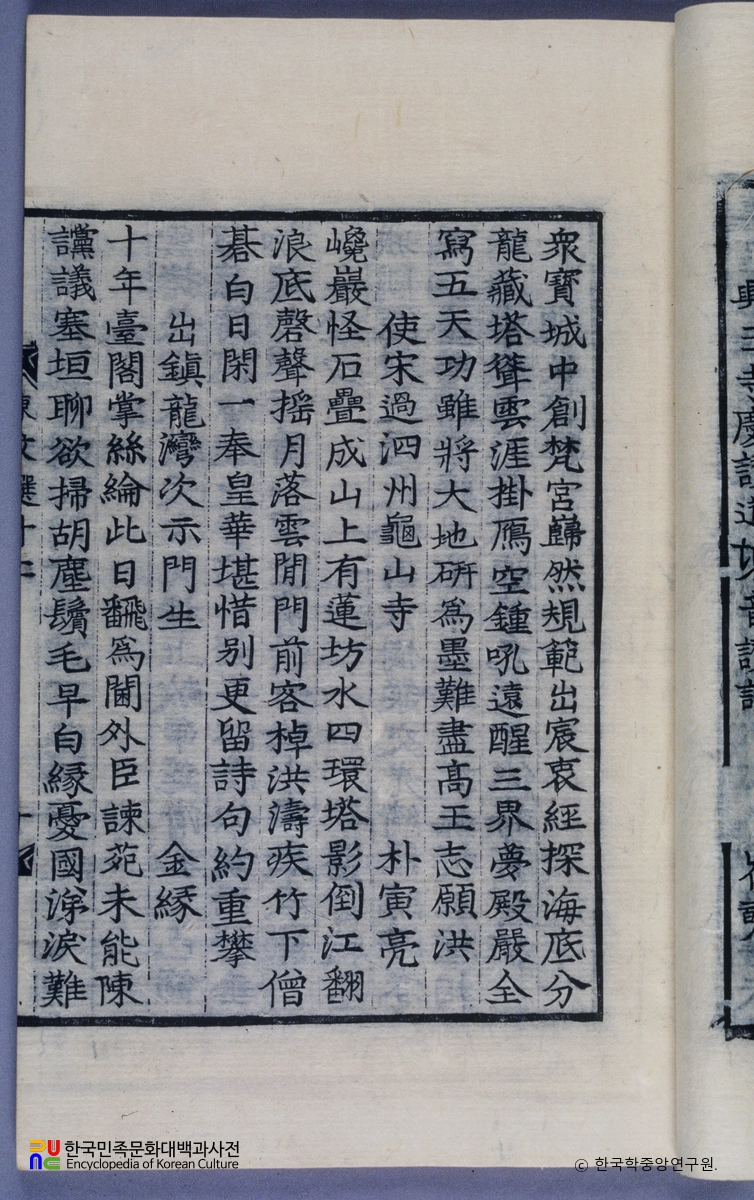 衆寶城中創梵宮巋然規範出宸衷經探海底分
龍藏塔聳雲涯掛鴈空鍾吼遠醒三界夢殿嚴全
寫五天功雖將大地硏爲墨難盡高王志願洪
使宋過泗州龜山寺 朴寅亮
巉巖怪石疊成山上有蓮坊水四環塔影倒江翻
浪底磬聲搖月落雲閒門前客棹洪濤疾竹下僧
碁白日閑一奉皇華堪惜别更留詩句約重攀
出鎭龍灣次示門生 金緣
十年臺閣掌絲綸此日飜爲閫外臣諫苑未能陳
讜議塞垣聊欲掃胡塵鬢毛早白緣憂國涕淚難
東文選十二
한국민족문화대백과사전
Encyclopedia of Korean Culture
© 한국학중앙연구원.